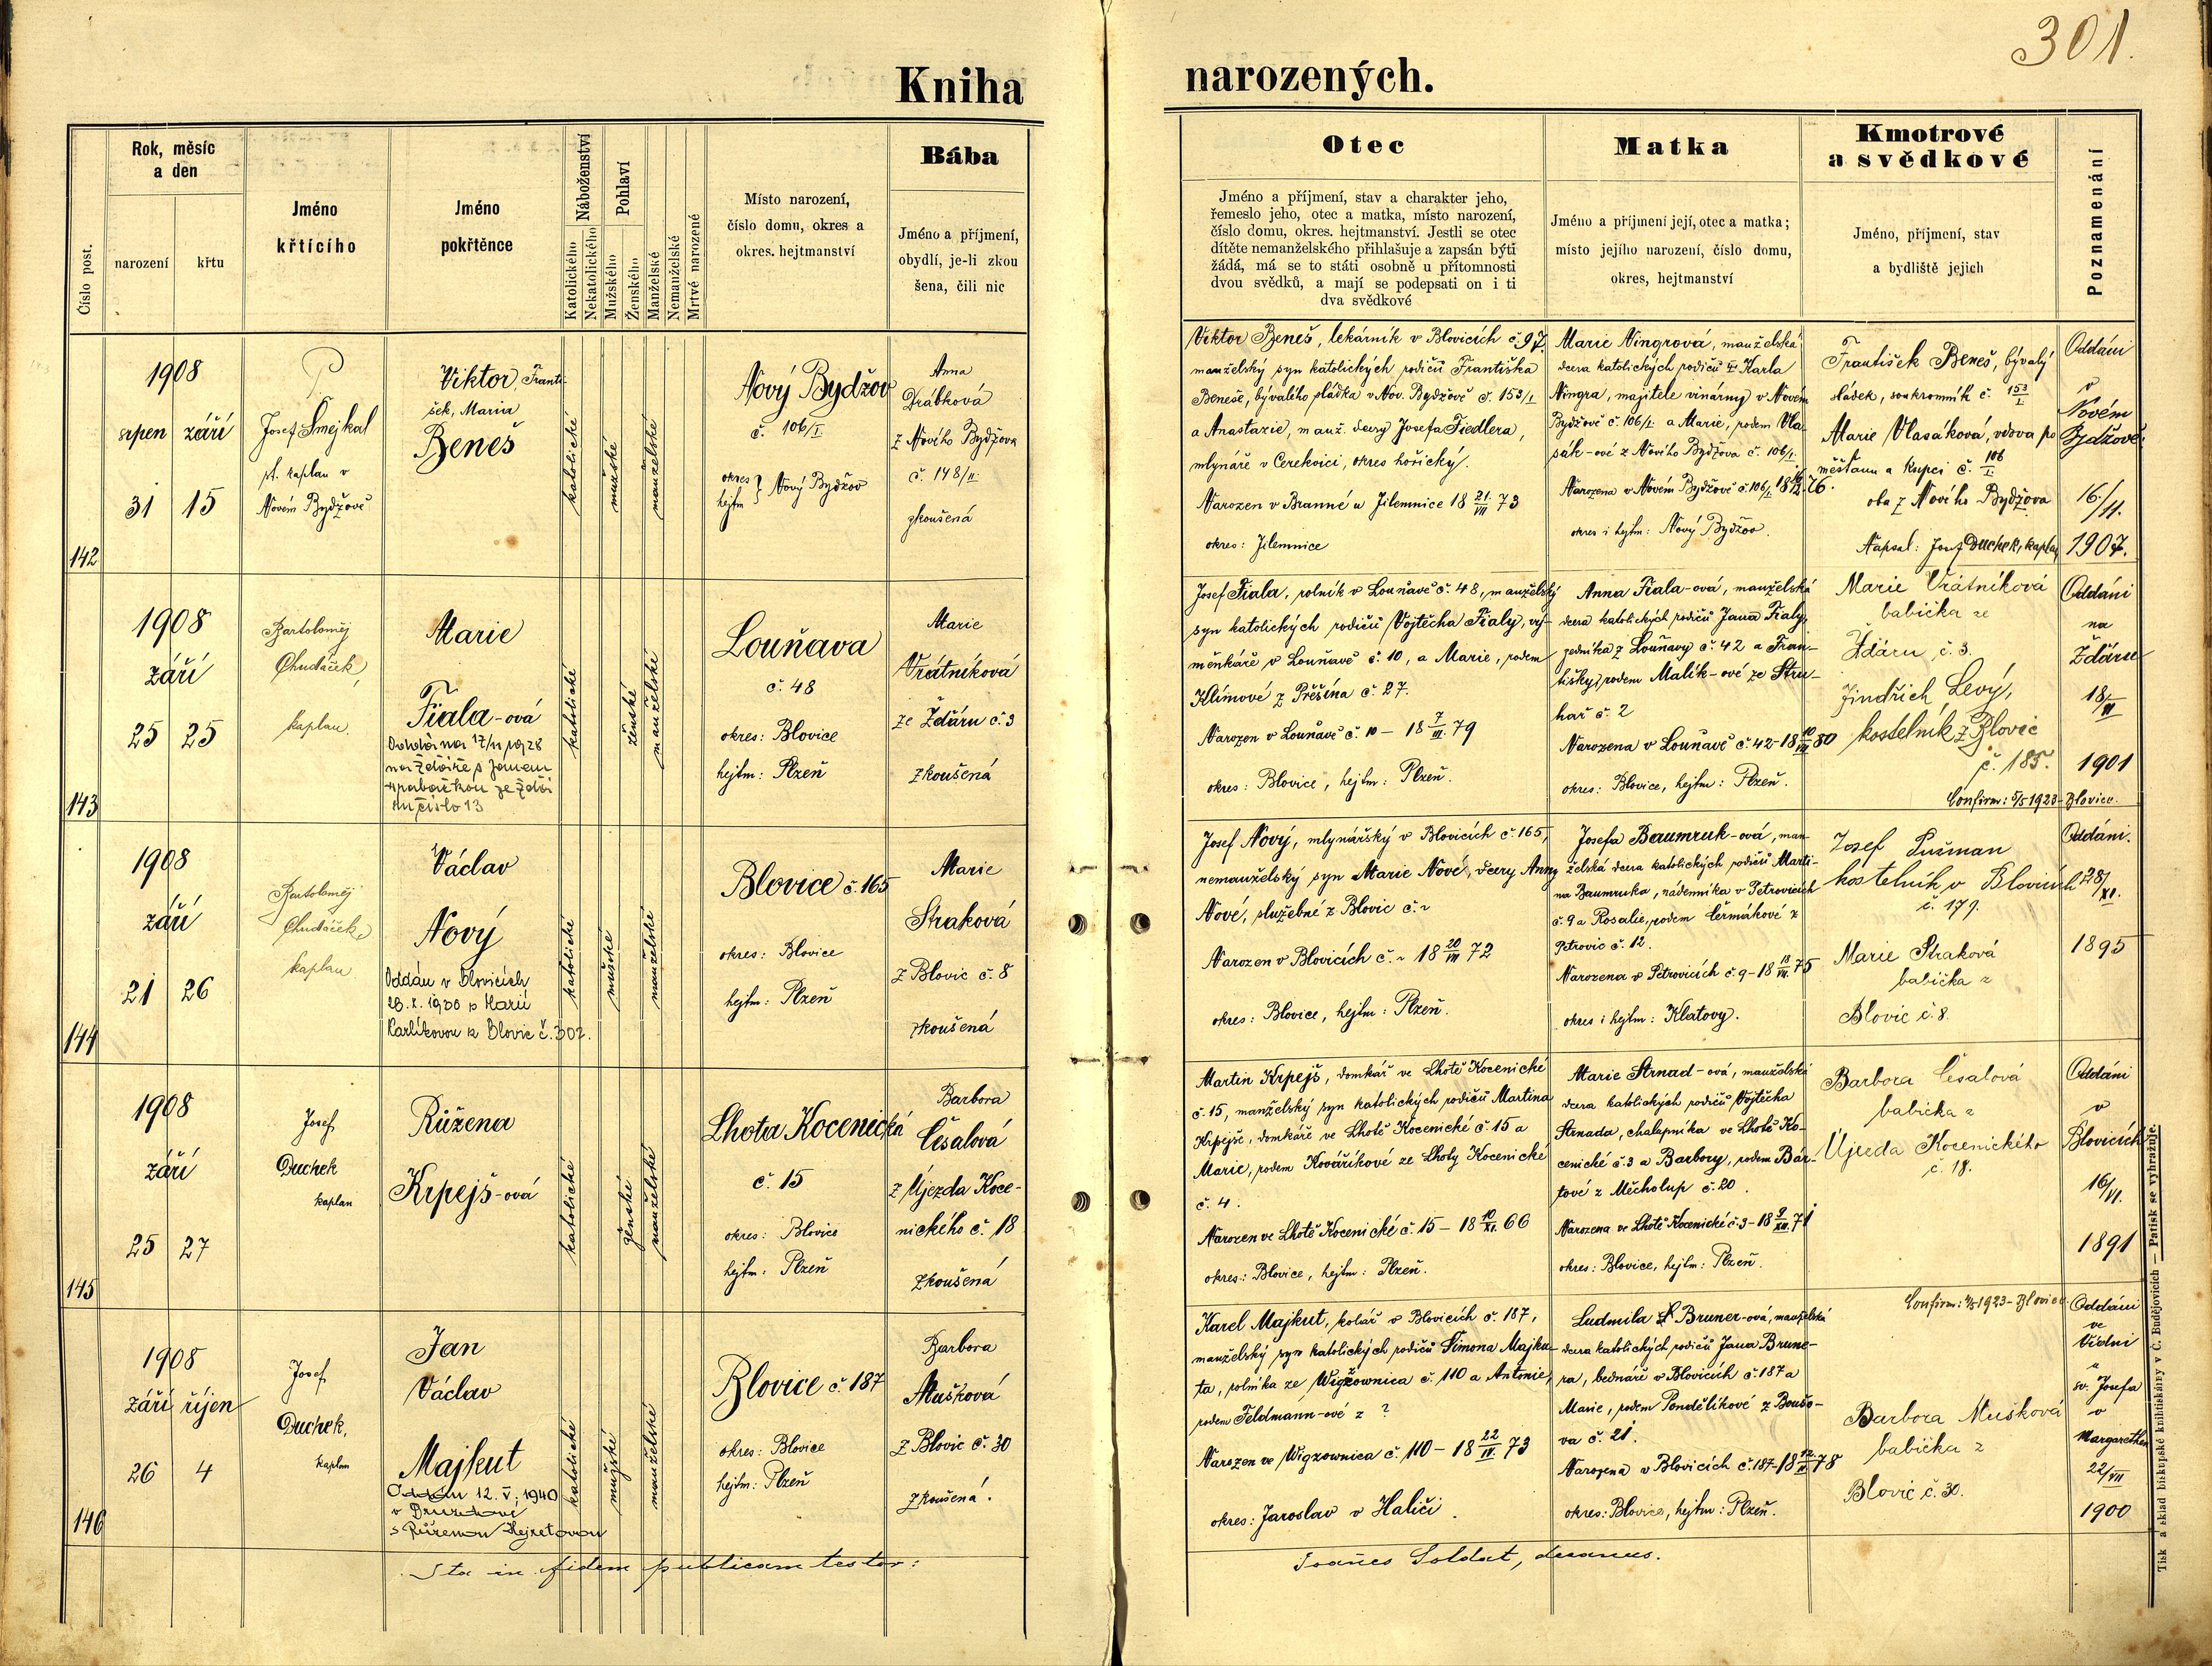 301.
Kniha narozených.
Číslo post.
Rok, měsíc
a den
narození
křtu
Jméno
křtícího
Jméno
pokřtěnce
Náboženství
Katolického
Nekatolického
Pohlaví
Mužského
Ženského
Manželské
Nemanželské
Mrtvě narozené
Místo narození,
číslo domu, okres a
okres. hejtmanství
Bába
Jméno a příjmení,
obydlí, je-li zkou
šena, čili nic
Otec
Jméno a příjmení, stav a charakter jeho,
řemeslo jeho, otec a matka, místo narození,
číslo domu, okres. hejtmanství. Jestli se otec
dítěte nemanželského přihlašuje a zapsán býti
žádá, má se to státi osobně u přítomnosti
dvou svědků, a mají se podepsati on i ti
dva svědkové
Matka
Jméno a příjmení její, otec a matka;
místo jejího narození, číslo domu,
okres, hejtmanství
Kmotrové
a svědkové
Jméno, příjmení, stav
a bydliště jejich
Poznamenání
142
1908
srpen září
31 15
P
Josef Smejkal
st. kaplan v
Novém Bydžově
Viktor, Franti-
šek, Maria
Beneš
katolické
mužské
manželské
Nový Bydžov
č. 106/I.
okres
hejtm } Nový Bydžov
Anna
Drábková
z Nového Bydžova
č. 148/II.
zkoušená
Viktor Beneš, lekárník v Blovicích č. 97.
manželský syn katolických rodičů Františka
Beneše, bývalého sládka v Nov. Bydžově č. 153/I.
a Anastazie, manž. dcery Josefa Fiedlera,
mlynáře v Cerekvici, okres hořický.
Narozen v Branné u Jilemnice 18 21/VII 73
okres: Jilemnice
Marie Ningrová, manželská
dcera katolických rodičů Karla
Ningra, majitele vinárny v Novém
Bydžově č. 106/I. a Marie, rodem Vla-
sák-ové z Nového Bydžova č. 106/I.
Narozena v Novém Bydžově č. 106/I. 76.
okres i hejtm: Nový Bydžov.
František Beneš, bývalý
sládek, soukromník č. 153/I
Marie Vlasáková, vdova po
měšťanu a kupci č. 106/I.
oba z Nového Bydžova
Napsal: Josef Duchek, kaplan
Oddáni
v
Novém
Bydžově
16./11.
1907.
143
1908
září
25 25
Bartoloměj
Chudáček,
kaplan.
Marie
Fiala-ová
Oddána 17/11 1928
na Žďáře s Janem
ze Žďá
ru číslo 13
katolické
ženské
manželské
Louňava
č. 48
okres: Blovice
hejtm: Plzeň
Marie
Vrátníková
ze Žďáru č. 3
zkoušená
Josef Fiala, rolník v Louňavě č. 48, manželský
syn katolických rodičů Vojtěcha Fialy, vý-
měnkáře v Louňavě č. 10, a Marie, rodem
Klímové z Přešína č. 27.
Narozen v Louňavě č. 10 - 18 7/III. 79
okres: Blovice, hejtm: Plzeň.
Anna Fiala-ová, manželská
dcera katolických rodičů Jana Fialy,
zedníka z Louňavy č. 42 a Fran-
tišky, rodem Malík-ové ze Stru-
hař č. 2
Narozena v Louňavě č. 42 - 18 80
okres: Blovice, hejtm: Plzeň.
Marie Vrátníková
babička ze
Ždáru č. 3.
Jindřich Levý,
kostelník z Blovic
č. 185.
Confirm: 5/5 1923 - Blovice.
Oddáni
na
Žďáru
18/VI
1901
144
1908
září
21 26
Bartoloměj
Chudáček,
kaplan
Václav
Nový
Oddán v Blovicích
28. X. 1930 s Marií
Karlíkovou z Blovic č. 302.
katolické
mužské
manželské
Blovice č. 165
okres: Blovice
hejtm: Plzeň
Marie
Straková
z Blovic č. 8
zkoušená
Josef Nový, mlynářský v Blovicích č. 165,
nemanželský syn Marie Nové, dcery Anny
Nové, služebné z Blovic č. ~
Narozen v Blovicích č. ~ 18 20/VIII 72
okres: Blovice, hejtm: Plzeň.
Josefa Baumruk-ová, man-
želská dcera katolických rodičů Marti-
na Baumruka, nádenníka v Petrovicích
č. 9 a Rosalie, rodem Čermákové z
Petrovic č. 12.
Narozena v Petrovicích č. 9 - 18 75
okres i hejtm: Klatovy.
Josef Pužman
kostelník v Blovicích
č. 179.
Marie Straková
babička z
Blovic č. 8.
Oddáni.
28/XI.
1895
145
1908
září
25 27
Josef
Duchek
kaplan
Růžena
Krpejš-ová
katolické
ženské
manželské
Lhota Kocenická
č. 15
okres: Blovice
hejtm: Plzeň
Barbora
Česalová
z Újezda Koce-
nického č. 18
zkoušená
Martin Krpejš, domkář ve Lhotě Kocenické
č. 15, manželský syn katolických rodičů Martina
Krpejše, domkáře ve Lhotě Kocenické č. 15 a
Marie, rodem Kováříkové ze Lhoty Kocenické
č. 4.
Narozen ve Lhotě Kocenické č. 15 - 18 10/XI. 66
okres: Blovice, hejtm: Plzeň.
Marie Strnad-ová, manželská
dcera katolických rodičů Vojtěcha
Strnada, chalupníka ve Lhotě Ko-
cenické č. 3 a Barbory, rodem Bár-
tové z Měcholup č. 20.
Narozena ve Lhotě Kocenické č. 3 - 18 9/XII. 71
okres: Blovice, hejtm: Plzeň.
Barbora Česalová
babička z
Újezda Kocenického
č. 18.
Oddáni
v
Blovicích
16/VI.
1891
146
1908
září říjen
26 4
Josef
Duchek,
kaplan
Jan
Václav
Majkut
Oddán 12. V. 1940
v
s Růženou Hejretovou
katolické
mužské
manželské
Blovice č. 187
okres: Blovice
hejtm: Plzeň
Barbora
Mušková
z Blovic č. 30
zkoušená.
Karel Majkut, kolář v Blovicích č. 187,
manželský syn katolických rodičů Šimona Majku-
ta, rolníka ze Wigzownica č. 110 a Antonie,
rodem Feldmann-ové z ?
Narozen ve Wigzownica č. 110 - 18 22/IX. 73
okres: Jaroslav v Haliči.
Ludmila Bruner-ová, manželská
dcera katolických rodičů Jana Brune-
ra, bednáře v Blovicích č. 187 a
Marie, rodem Pondělíkové z Boušo-
va č. 21.
Narozena v Blovicích č. 187 - 18 78
okres: Blovice, hejtm: Plzeň.
Confirm: 5/5 1923 - Blovice
Barbora Mušková
babička z
Blovic č. 30.
Oddáni
ve
Vídni
u
sv. Josefa
v
Margarethen
22/VII
1900
Ita in fidem publicam testor:
Joañes Soldat, decanus.
Tisk a sklad biskupské knihtiskárny v Č. Budějovicích — Patisk se vyhražuje.